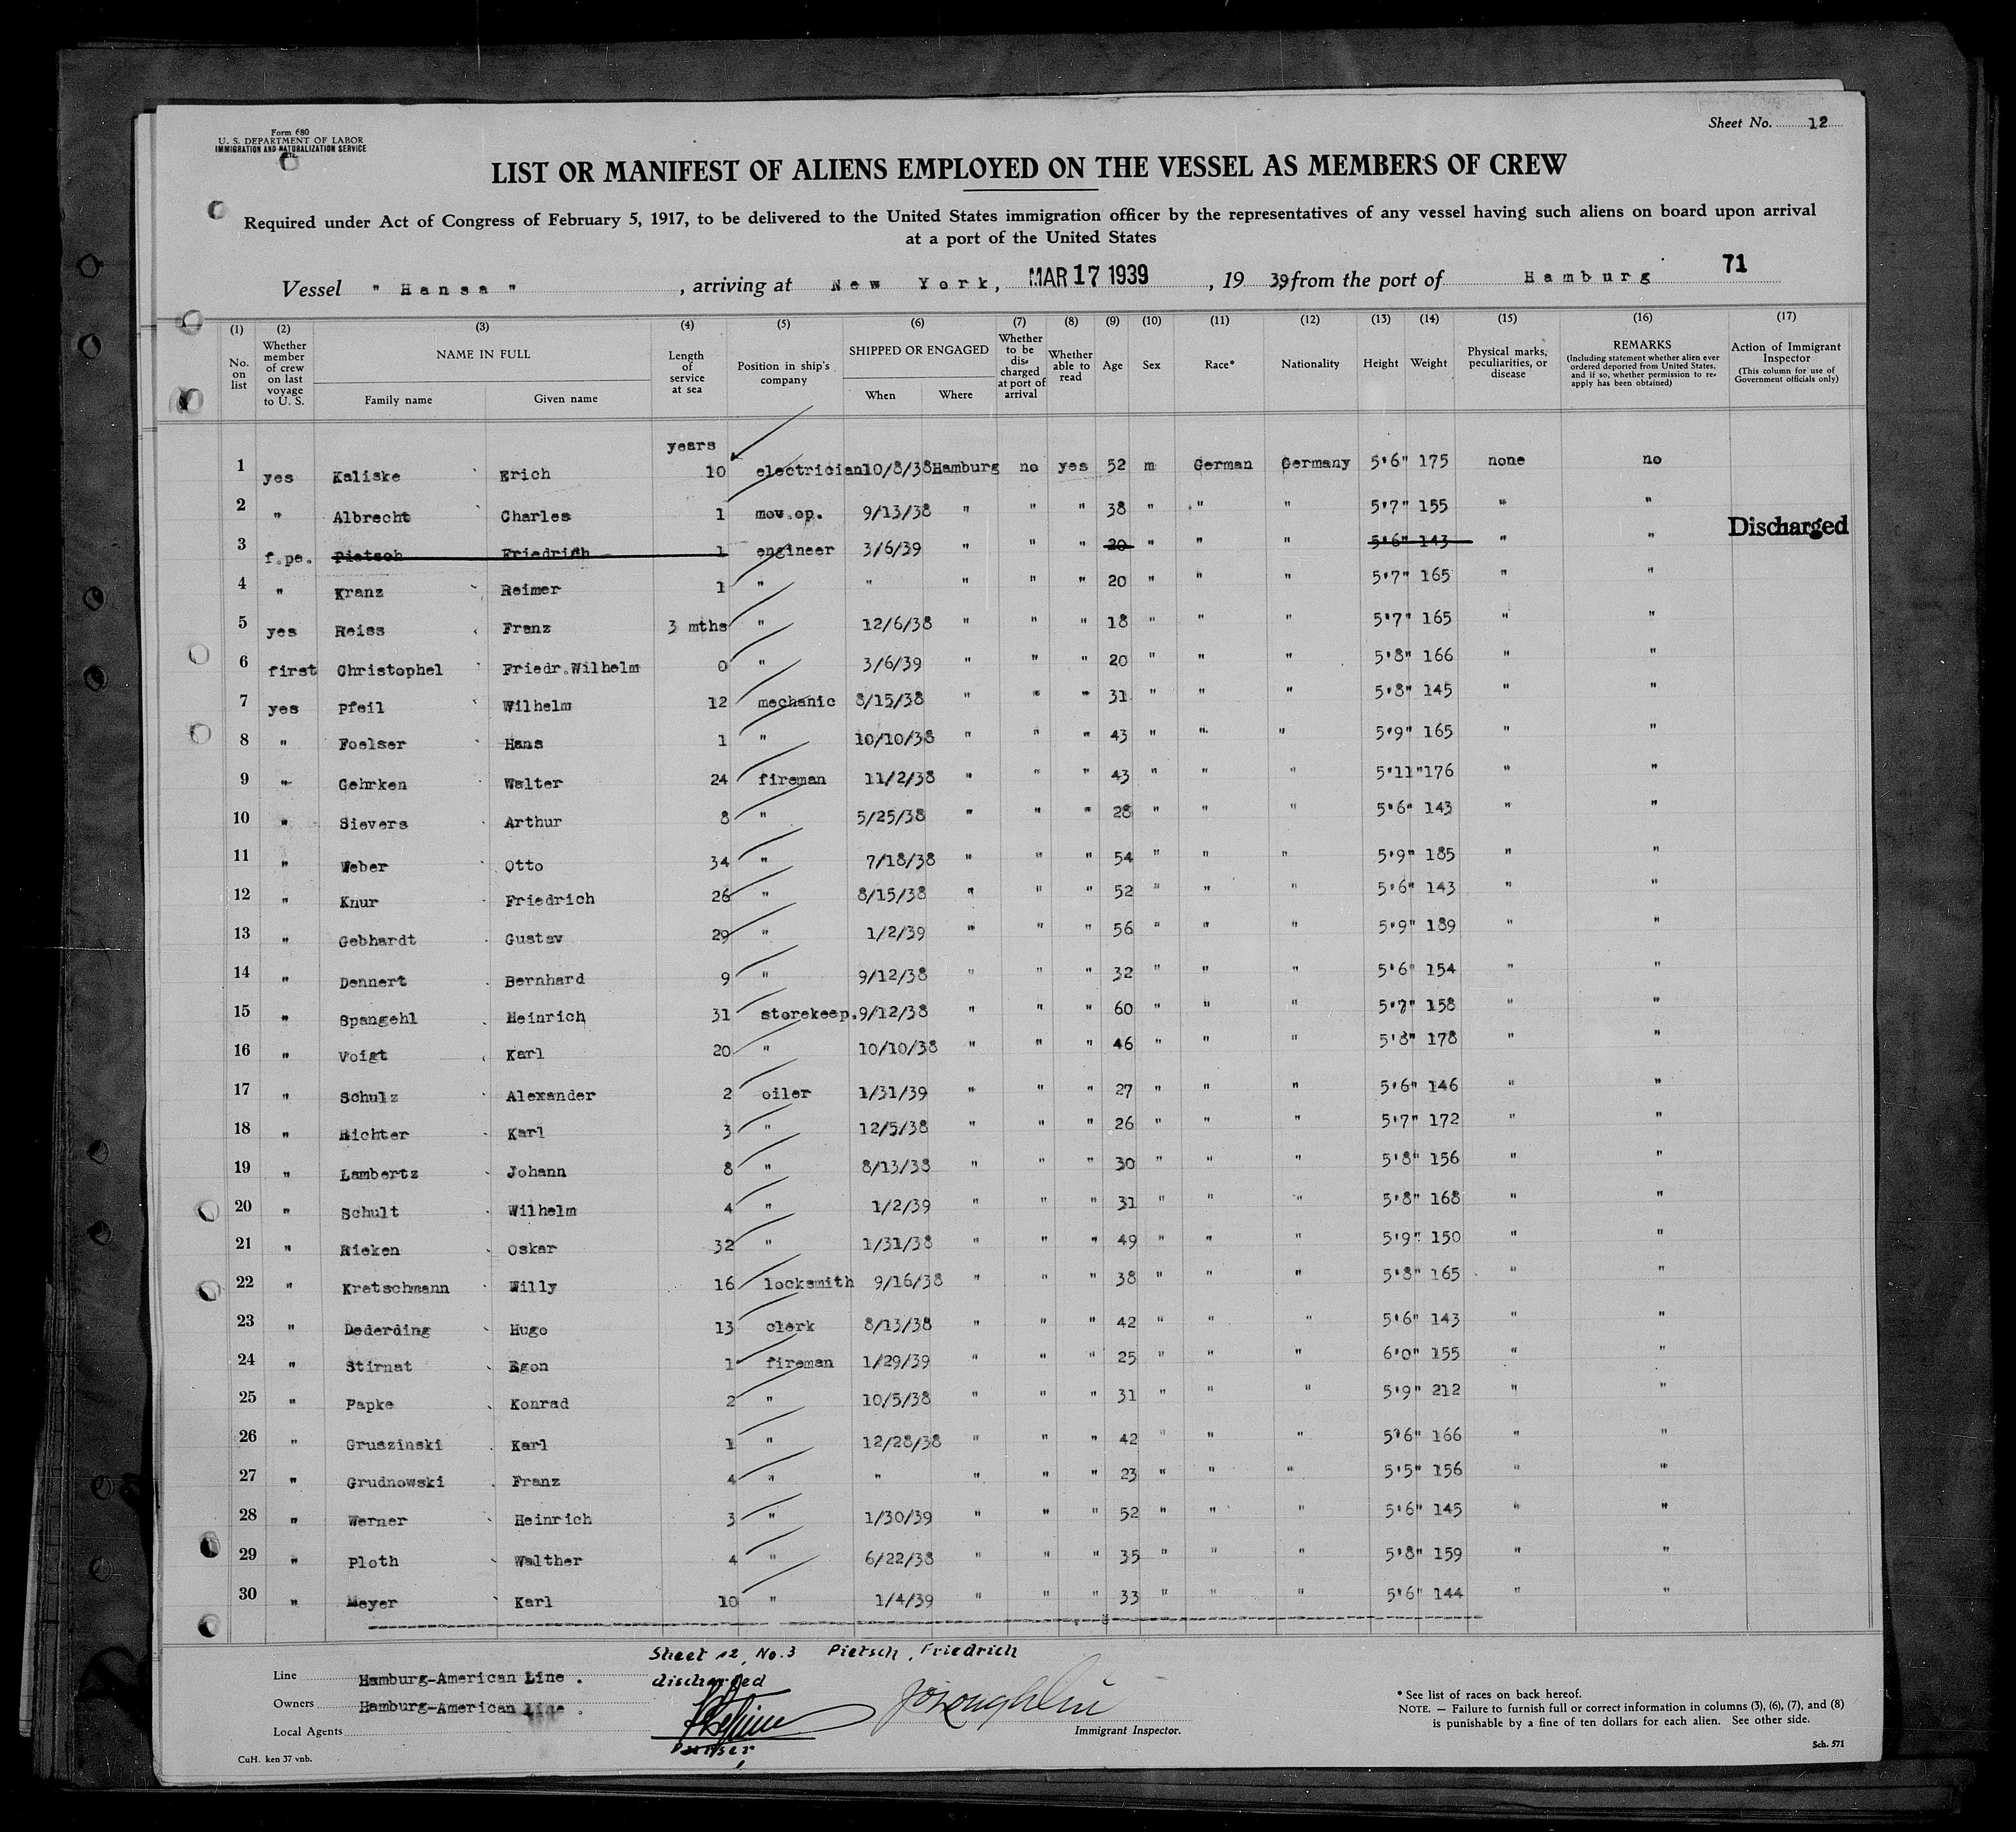 Form 680
U. S. DEPARTMENT OF LABOR
IMMIGRATION AND NATURALIZATION SERVICE
Sheet No. 12
LIST OR MANIFEST OF ALIENS EMPLOYED ON THE VESSEL AS MEMBERS OF CREW
Required under Act of Congress of February 5, 1917, to be delivered to the United States immigration officer by the representatives of any vessel having such aliens on board upon arrival
at a port of the United States
71
Vessel " Hansa " , arriving at New York, MAR 17 1939 , 19 39, from the port of Hamburg
(1) (2) (3) (4) (5) (6) (7) (8) (9) (10) (11) (12) (13) (14) (15) (16) (17)
No. on list Whether member of crew on last voyage to U. S. NAME IN FULL Family name Given name Length of service at sea Position in ship's company SHIPPED OR ENGAGED When Where Whether to be discharged at port of arrival Whether able to read Age Sex Race* Nationality Height Weight Physical marks, peculiarities, or disease REMARKS (Including statement whether alien ever ordered deported from United States, and if so, whether permission to reapply has been obtained) Action of Immigrant Inspector (This column for use of Government officials only)
years
1 yes Kaliske Erich 10 electrician 10/8/38 Hamburg no yes 52 m German Germany 5'6" 175 none no
2 " Albrecht Charles 1 mov.op. 9/13/38 " " " 38 " " " 5'7" 155 " "
3 f.pe. Pietsch Friedrich 1 engineer 3/6/39 " " " 20 " " " 5'6" 143 " " Discharged
4 " Kranz Reimer 1 " " " " " 20 " " " 5'7" 165 " "
5 yes Reiss Franz 3 mths " 12/6/38 " " " 18 " " " 5'7" 165 " "
6 first Christophel Friedr.Wilhelm 0 " 3/6/39 " " " 20 " " " 5'8" 166 " "
7 yes Pfeil Wilhelm 12 mechanic 8/15/38 " " " 31 " " " 5'8" 145 " "
8 " Foelser Hans 1 " 10/10/38 " " " 43 " " " 5'9" 165 " "
9 " Gehrken Walter 24 fireman 11/2/38 " " " 43 " " " 5'11" 176 " "
10 " Sievers Arthur 8 " 5/25/38 " " " 28 " " " 5'6" 143 " "
11 " Weber Otto 34 " 7/18/38 " " " 54 " " " 5'9" 185 " "
12 " Knur Friedrich 26 " 8/15/38 " " " 52 " " " 5'6" 143 " "
13 " Gebhardt Gustav 29 " 1/2/39 " " " 56 " " " 5'9" 189 " "
14 " Dennert Bernhard 9 " 9/12/38 " " " 32 " " " 5'6" 154 " "
15 " Spangehl Heinrich 31 storekeep. 9/12/38 " " " 60 " " " 5'7" 158 " "
16 " Voigt Karl 20 " 10/10/38 " " " 46 " " " 5'8" 178 " "
17 " Schulz Alexander 2 oiler 1/31/39 " " " 27 " " " 5'6" 146 " "
18 " Richter Karl 3 " 12/5/38 " " " 26 " " " 5'7" 172 " "
19 " Lambertz Johann 8 " 8/13/38 " " " 30 " " " 5'8" 156 " "
20 " Schult Wilhelm 4 " 1/2/39 " " " 31 " " " 5'8" 168 " "
21 " Rieken Oskar 32 " 1/31/38 " " " 49 " " " 5'9" 150 " "
22 " Kretschmann Willy 16 locksmith 9/16/38 " " " 38 " " " 5'8" 165 " "
23 " Dederding Hugo 13 clerk 8/13/38 " " " 42 " " " 5'6" 143 " "
24 " Stirnat Egon 1 fireman 1/29/39 " " " 25 " " " 6'0" 155 " "
25 " Papke Konrad 2 " 10/5/38 " " " 31 " " " 5'9" 212 " "
26 " Gruszinski Karl 1 " 12/28/38 " " " 42 " " " 5'6" 166 " "
27 " Grudnowski Franz 4 " " " " " 23 " " " 5'5" 156 " "
28 " Werner Heinrich 3 " 1/30/39 " " " 52 " " " 5'6" 145 " "
29 " Ploth Walther 4 " 6/22/38 " " " 35 " " " 5'8" 159 " "
30 " Meyer Karl 10 " 1/4/39 " " " 33 " " " 5'6" 144 " "
Sheet 12, No.3 Pietsch, Friedrich
discharged
Line Hamburg-American Line .
Owners Hamburg-American Line .
Local Agents
Purser
JO'Loughlin
Immigrant Inspector.
* See list of races on back hereof.
NOTE. — Failure to furnish full or correct information in columns (3), (6), (7), and (8)
is punishable by a fine of ten dollars for each alien. See other side.
CuH. ken 37 vnb.
Sch. 571